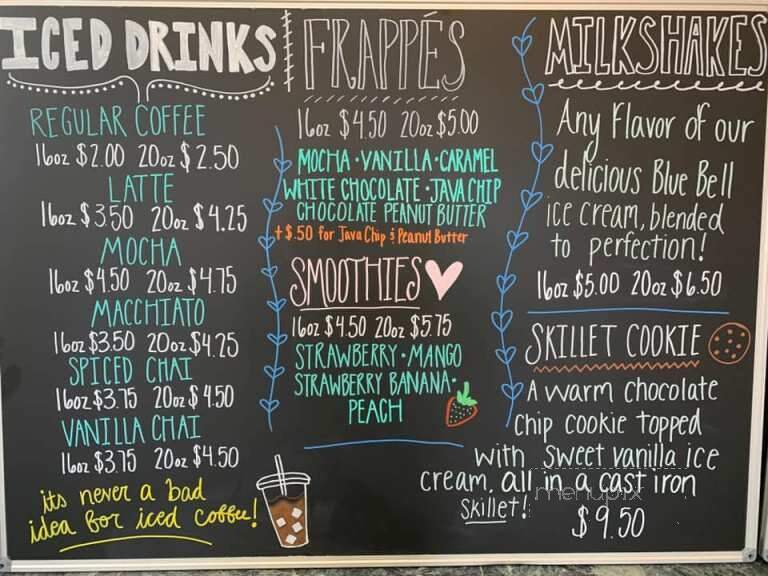 ICED DRINKS
REGULAR COFFEE
16oz $2.00 20oz $2.50
LATTE
16oz $3.50 20oz $4.25
MOCHA
16oz $4.50 20oz $4.75
MACCHIATO
16oz $3.50 20oz $4.25
SPICED CHAI
16oz $3.75 20oz $4.50
VANILLA CHAI
16oz $3.75 20oz $4.50
its never a bad
idea for iced coffee!
FRAPPÉS
16oz $4.50 20oz $5.00
MOCHA · VANILLA · CARAMEL
WHITE CHOCOLATE · JAVA CHIP
CHOCOLATE PEANUT BUTTER
+$.50 for Java Chip & Peanut Butter
SMOOTHIES
16oz $4.50 20oz $5.75
STRAWBERRY · MANGO
STRAWBERRY BANANA ·
PEACH
MILKSHAKES
Any Flavor of our
delicious Blue Bell
ice cream, blended
to perfection!
16oz $5.00 20oz $6.50
SKILLET COOKIE
A warm chocolate
chip cookie topped
with sweet vanilla ice
cream, all in a cast iron
skillet!
$9.50
menupix